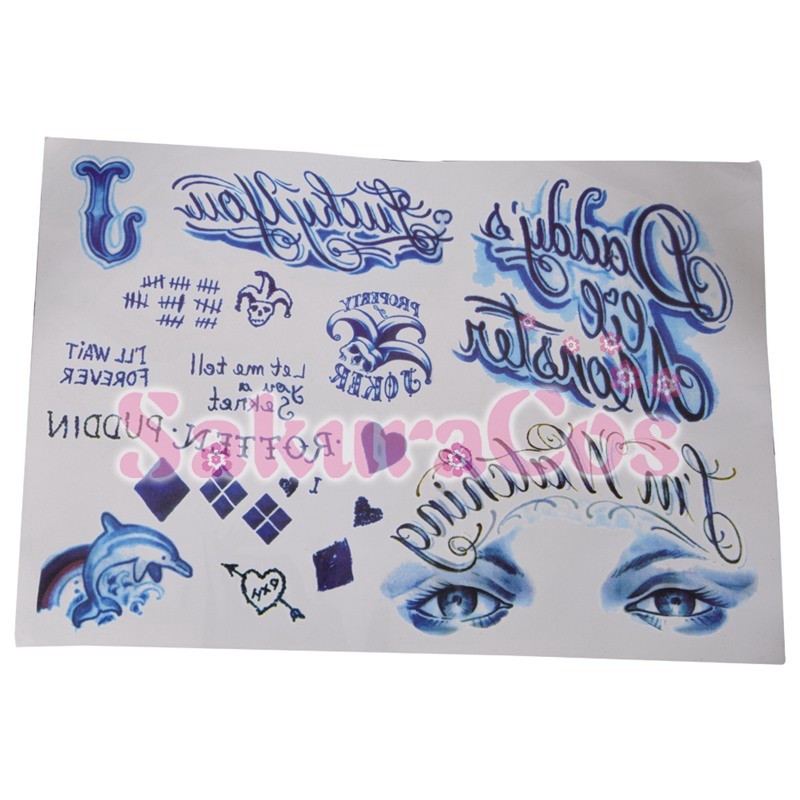 J
Lucky You
Daddy's
Monster
PROPERTY
of
JOKER
I'LL WAIT
FOREVER
Let me tell
you a
Sekret
SakuraCos
·ROTTEN·PUDDIN
I
I'm Watching